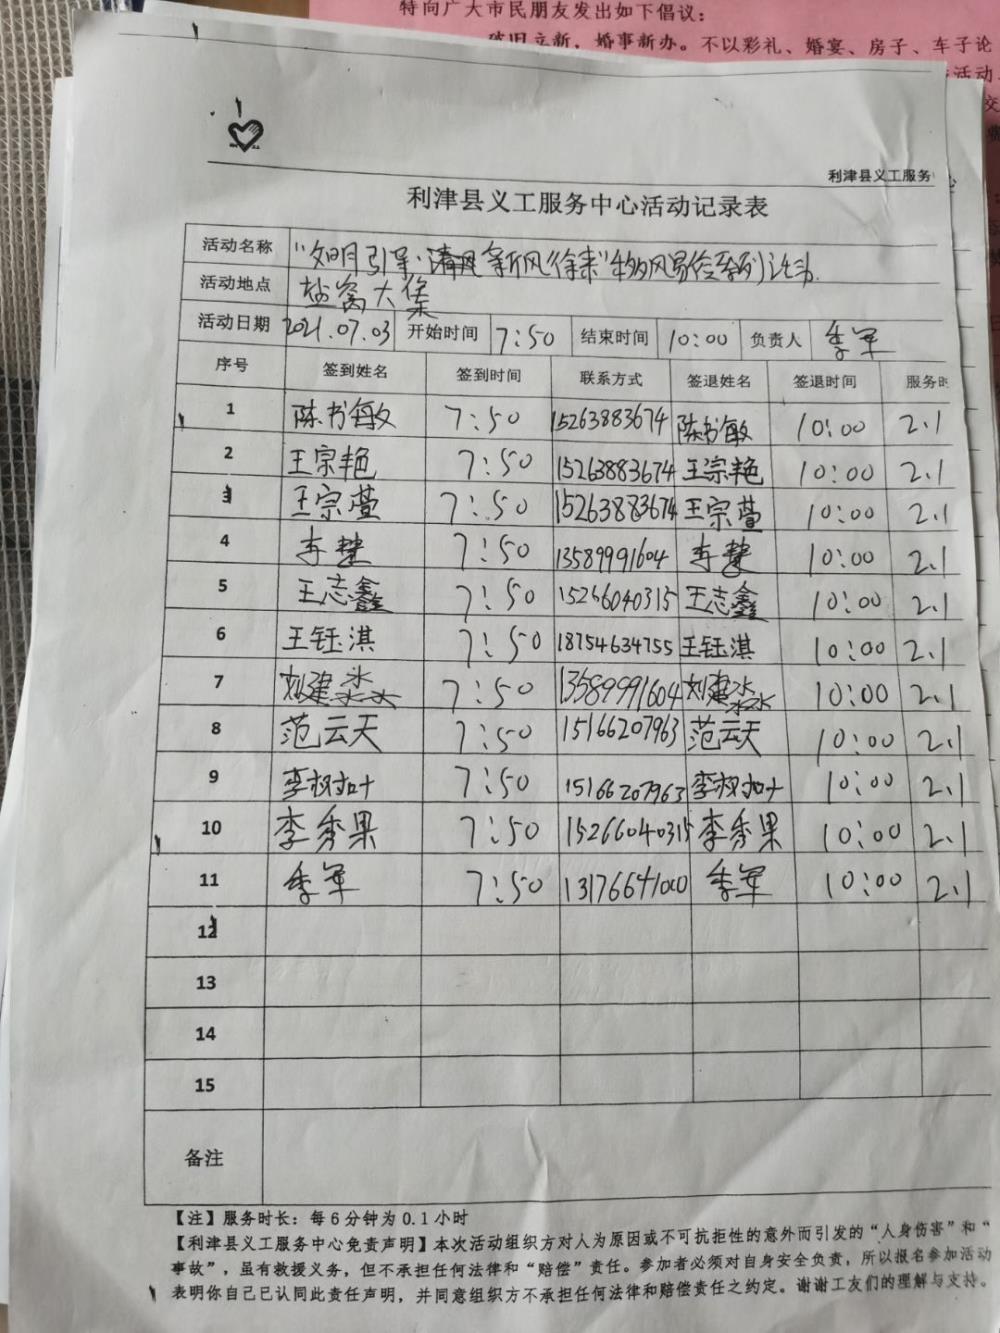 特向广大市民朋友发出如下倡议：
破旧立新，婚事新办。不以彩礼、婚宴、房子、车子论
活动
利津县义工服务
利津县义工服务中心活动记录表
活动名称 “文明引导·清风新风徐来”移风易俗系列活动
活动地点 盐窝大集
活动日期 2021.07.03 开始时间 7:50 结束时间 10:00 负责人 季军
序号 签到姓名 签到时间 联系方式 签退姓名 签退时间 服务时
1 陈书敏 7:50 15263883674 陈书敏 10:00 2.1
2 王宗艳 7:50 15263883674 王宗艳 10:00 2.1
3 王宗萱 7:50 15263883674 王宗萱 10:00 2.1
4 李慧 7:50 13589991604 李慧 10:00 2.1
5 王志鑫 7:50 15266040315 王志鑫 10:00 2.1
6 王钰淇 7:50 18754634755 王钰淇 10:00 2.1
7 刘建淼 7:50 13589991604 刘建淼 10:00 2.1
8 范云天 7:50 15166207963 范云天 10:00 2.1
9 李树叶 7:50 15166207963 李树叶 10:00 2.1
10 李秀果 7:50 15266040315 李秀果 10:00 2.1
11 季军 7:50 13176641000 季军 10:00 2.1
12
13
14
15
备注
【注】服务时长：每6分钟为0.1小时
【利津县义工服务中心免责声明】本次活动组织方对人为原因或不可抗拒性的意外而引发的“人身伤害”和“
事故”，虽有救援义务，但不承担任何法律和“赔偿”责任。参加者必须对自身安全负责，所以报名参加活动
表明你自己已认同此责任声明，并同意组织方不承担任何法律和赔偿责任之约定。谢谢工友们的理解与支持。